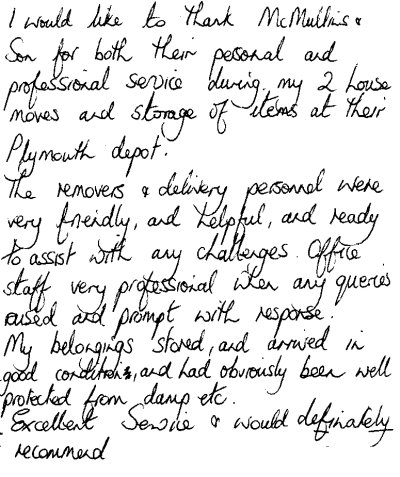 I would like to thank McMullins &
Son for both their personal and
professional service during my 2 house
moves and storage of items at their
Plymouth depot.
The removers & delivery personnel were
very friendly, and helpful, and ready
to assist with any challenges. Office
staff very professional when any queries
raised and prompt with response.
My belongings stored, and arrived in
good condition, and had obviously been well
protected from damp etc.
Excellent Service & would definately
recommend